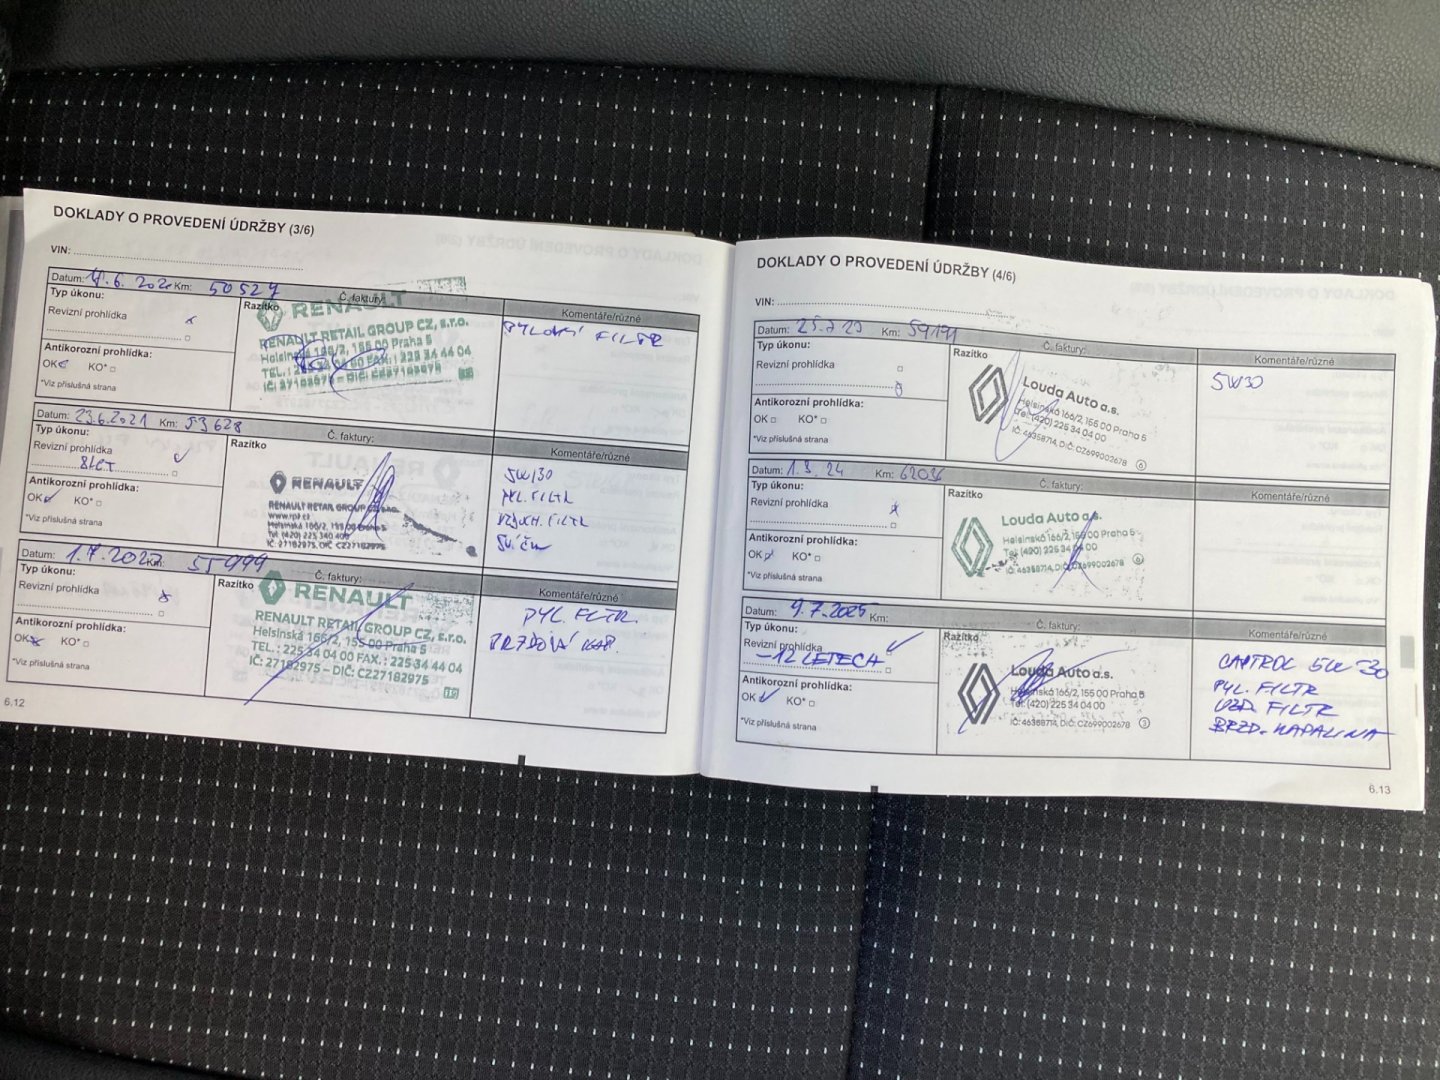 DOKLADY O PROVEDENÍ ÚDRŽBY (3/6)
VIN:
Datum: Km: 50527
Typ úkonu:
Razítko
Č. faktury:
Komentáře/různé
Revizní prohlídka x
RENAULT
RENAULT RETAIL GROUP CZ, s.r.o.
Helsinská 166/2, 155 00 Praha 5
PYLOVÝ FILTR
Antikorozní prohlídka:
OK KO*
*Viz příslušná strana
Datum: 23.6.2021 Km: 53628
Typ úkonu:
Razítko
Č. faktury:
Komentáře/různé
Revizní prohlídka
8LET
RENAULT
RENAULT RETAIL GROUP
5W30
PYL. FILTR
VZDUCH. FILTR
Antikorozní prohlídka:
OK KO*
*Viz příslušná strana
Datum: 1.7.2022 Km: 55999
Typ úkonu:
Razítko
Č. faktury:
Komentáře/různé
Revizní prohlídka x
RENAULT
RENAULT RETAIL GROUP CZ, s.r.o.
Helsinská 166/2, 155 00 Praha 5
TEL.: 225 34 04 00 FAX.: 225 34 44 04
IČ: 27182975 – DIČ: CZ27182975
PYL. FILTR.
BRZDOVÁ KAP.
Antikorozní prohlídka:
OK KO*
*Viz příslušná strana
6.12
DOKLADY O PROVEDENÍ ÚDRŽBY (4/6)
VIN:
Datum: 25.7 23 Km: 59191
Typ úkonu:
Razítko
Č. faktury:
Komentáře/různé
Revizní prohlídka
Louda Auto a.s.
Helsinská 166/2, 155 00 Praha 5
Tel: (420) 225 34 04 00
IČ: 46358714, DIČ: CZ699002678 6
5W30
Antikorozní prohlídka:
OK KO*
*Viz příslušná strana
Datum: Km:
Typ úkonu:
Razítko
Č. faktury:
Komentáře/různé
Revizní prohlídka x
Louda Auto a.s.
Helsinská 166/2, 155 00 Praha 5
Tel: (420) 225 34 04 00
IČ: 46358714, DIČ: CZ699002678 6
Antikorozní prohlídka:
OK KO*
*Viz příslušná strana
Datum: 9.7.2025 Km:
Typ úkonu:
Razítko
Č. faktury:
Komentáře/různé
Revizní prohlídka
-12 LETECH
Louda Auto a.s.
Helsinská 166/2, 155 00 Praha 5
Tel: (420) 225 34 04 00
IČ: 46358714, DIČ: CZ699002678 3
CASTROL 5W30
PYL. FILTR
VZD. FILTR
BRZD. KAPALINA
Antikorozní prohlídka:
OK KO*
*Viz příslušná strana
6.13